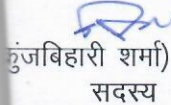 कुंजबिहारी शर्मा)
सदस्य